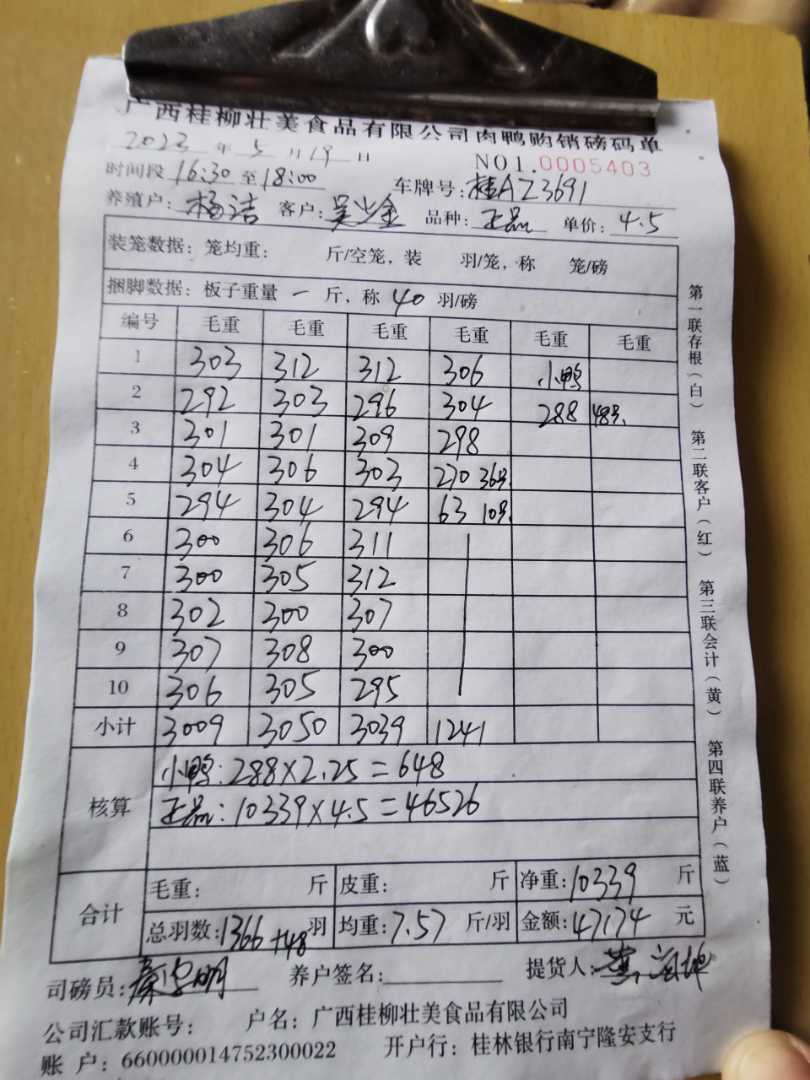 广西桂柳壮美食品有限公司肉鸭购销磅码单
2023年5月19日
NO1.0005403
时间段 16:30 至 18:00 车牌号: 桂AZ3691
养殖户: 杨洁 客户: 吴少金 品种: 正品 单价: 4.5
装笼数据: 笼均重: 斤/空笼, 装 羽/笼, 称 笼/磅
捆脚数据: 板子重量 一 斤, 称 40 羽/磅
编号 毛重 毛重 毛重 毛重 毛重 毛重
1 303 312 312 306 小鸭
2 292 303 296 304 288 48羽
3 301 301 309 298
4 304 306 303 270 36羽
5 294 304 294 63 10羽
6 300 306 311
7 300 305 312
8 302 300 307
9 307 308 300
10 306 305 295
小计 3009 3050 3039 1241
核算
小鸭: 288×2.25=648
正品: 10339×4.5=46526
合计
毛重: 斤 皮重: 斤 净重: 10339 斤
总羽数: 1366+48 羽 均重: 7.57 斤/羽 金额: 47174 元
司磅员: 养户签名: 提货人:
公司汇款账号: 户名: 广西桂柳壮美食品有限公司
账 户: 660000014752300022 开户行: 桂林银行南宁隆安支行
第一联存根(白)
第二联客户(红)
第三联会计(黄)
第四联养户(蓝)